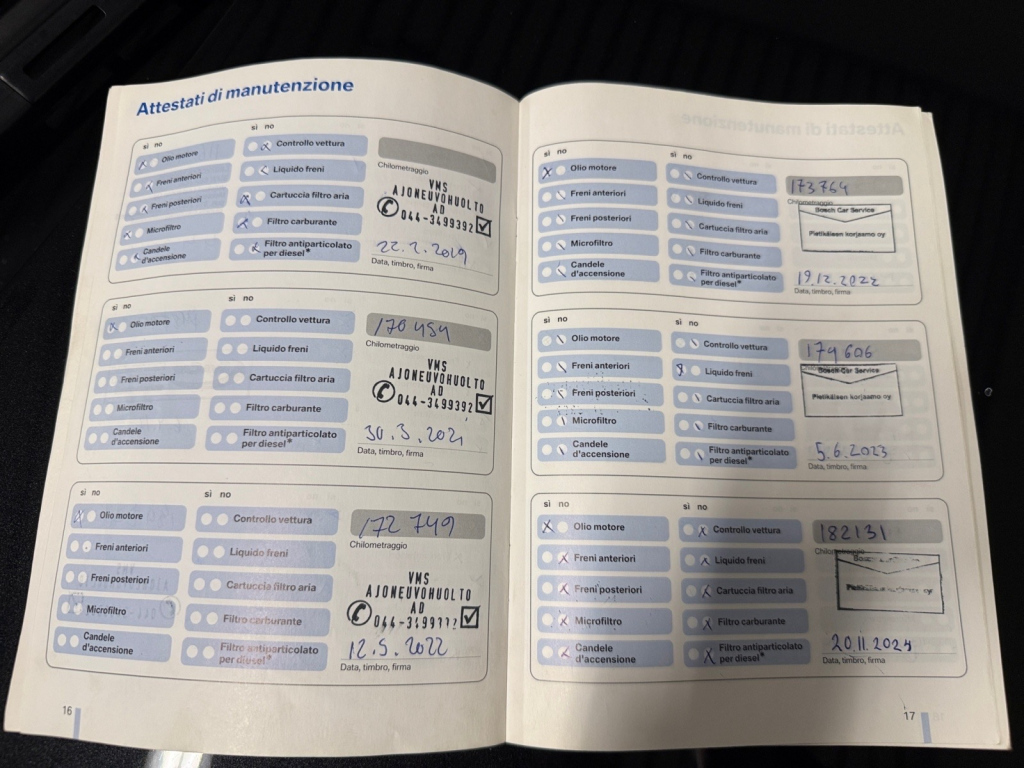 Attestati di manutenzione
sì no
sì no
Olio motore
Controllo vettura
Freni anteriori
Liquido freni
Freni posteriori
Cartuccia filtro aria
Microfiltro
Filtro carburante
Candele d'accensione
Filtro antiparticolato per diesel*
Chilometraggio
VMS
AJONEUVOHUOLTO
AD
044-3499392
22.2.2019
Data, timbro, firma
sì no
sì no
Olio motore
Controllo vettura
Freni anteriori
Liquido freni
Freni posteriori
Cartuccia filtro aria
Microfiltro
Filtro carburante
Candele d'accensione
Filtro antiparticolato per diesel*
170454
Chilometraggio
VMS
AJONEUVOHUOLTO
AD
044-3499392
30.3.2021
Data, timbro, firma
sì no
sì no
Olio motore
Controllo vettura
Freni anteriori
Liquido freni
Freni posteriori
Cartuccia filtro aria
Microfiltro
Filtro carburante
Candele d'accensione
Filtro antiparticolato per diesel*
172749
Chilometraggio
VMS
AJONEUVOHUOLTO
AD
12.5.2022
Data, timbro, firma
16
sì no
sì no
Olio motore
Controllo vettura
Freni anteriori
Liquido freni
Freni posteriori
Cartuccia filtro aria
Microfiltro
Filtro carburante
Candele d'accensione
Filtro antiparticolato per diesel*
173764
Chilometraggio
Bosch Car Service
Pietikäisen korjaamo oy
19.12.2022
Data, timbro, firma
sì no
sì no
Olio motore
Controllo vettura
Freni anteriori
Liquido freni
Freni posteriori
Cartuccia filtro aria
Microfiltro
Filtro carburante
Candele d'accensione
Filtro antiparticolato per diesel*
179606
Bosch Car Service
Pietikäisen korjaamo oy
5.6.2023
Data, timbro, firma
sì no
sì no
Olio motore
Controllo vettura
Freni anteriori
Liquido freni
Freni posteriori
Cartuccia filtro aria
Microfiltro
Filtro carburante
Candele d'accensione
Filtro antiparticolato per diesel*
182131
Chilometraggio
Pietikäisen korjaamo oy
20.11.2024
Data, timbro, firma
17